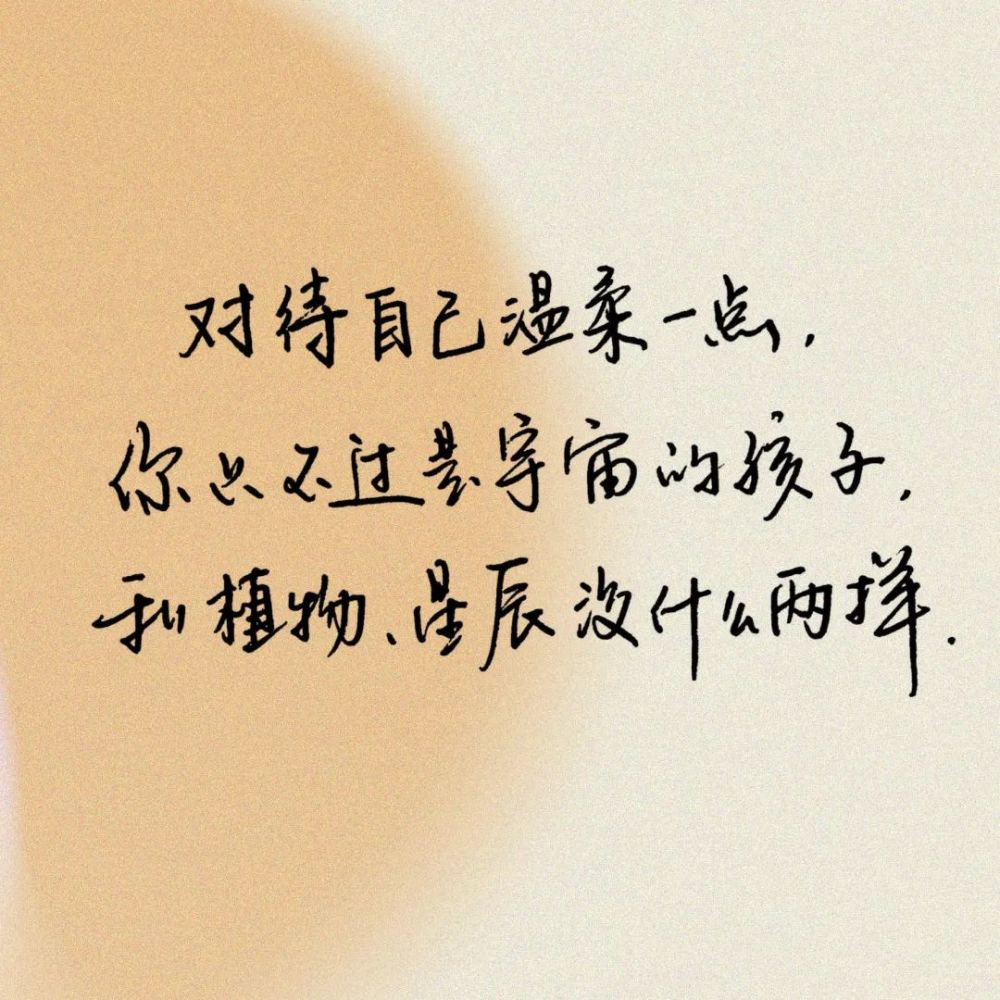 对待自己温柔一点，
你只不过是宇宙的孩子，
和植物、星辰没什么两样.